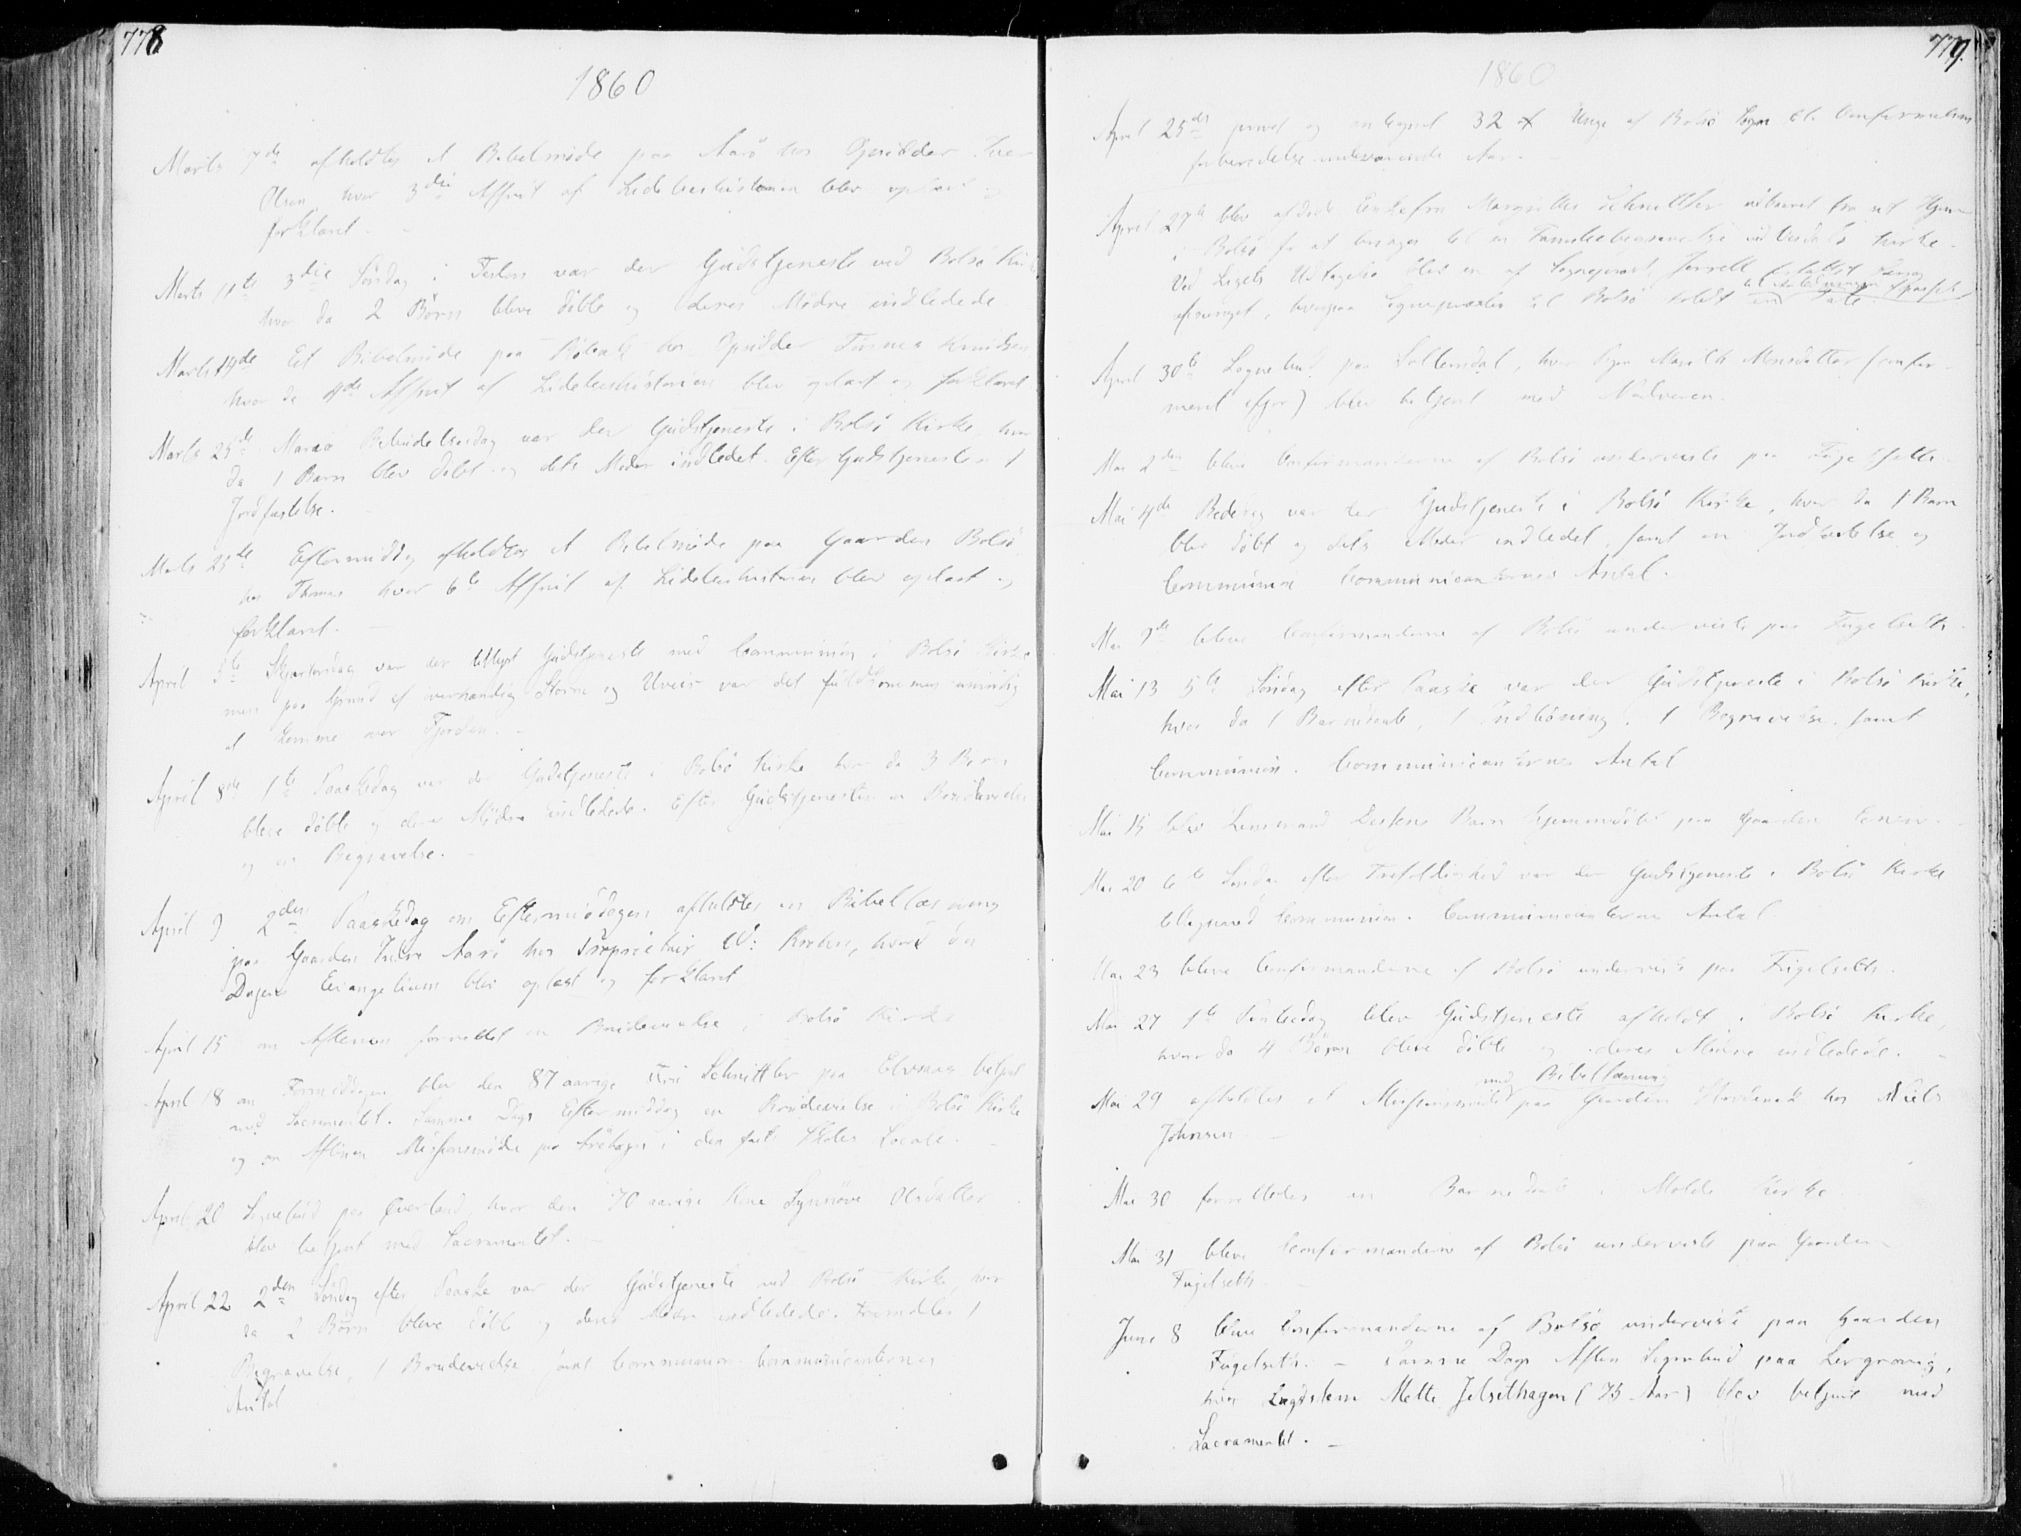 778
1860
Marts 7de afholdtes et Bibelmøde paa Aarö hos Opsidder Iver
Olsen, hvor 3die Afsnit af Lidelseshistorien blev oplæst og
forklaret.
Marts 11te 3die Söndag i Fasten var der Gudstjeneste ved Bolsö Kirke
hvor da 2 Börn bleve döbte og deres Mödre indledede
Marts 14de Et Bibelmöde paa hos Opsidder Knudsen
hvor da 4de Afsnit af Lidelseshistorien blev oplæst og forklaret
Marts 25de Mariæ Bebudelsesdag var der Gudstjeneste i Bolsö Kirke, hvor
da 1 Barn blev döbt og dets Moder indledet. Efter Gudstjenesten 1
Jordfæstelse.
Marts 25de Eftermiddag afholdtes et Bibelmöde paa Gaarden Bolsö
hos Thomas hvor 6te Afsnit af Lidelseshistorien blev oplæst og
forklaret.
April 5te Skjærtorsdag var der tillyst Gudstjeneste med Communion i Bolsö Kirke
men paa Grund af overhændig Storm og Uveir var det fuldkommen umulig
at komme over Fjorden.
April 8de 1te Paaskedag var der Gudstjeneste i Bolsö Kirke hvor da 3 Börn
bleve döbte og deres Mödre indledede. Efter Gudstjenesten en Brudevielse
og en Begravelse.
April 9 2den Paaskedag om Eftermiddagen afholdtes en Bibellæsning
paa Gaarden Indre Aarö hos Proprietair W: Krohn, hvor da
Dagens Evangelium blev oplæst og forklaret
April 15 om Aftenen forrettet en Brudevielse i Bolsö Kirke
April 18 om Formiddagen blev den 87 aarige Fru Schnittler paa betjent
med Sacramentet. Samme Dags Eftermiddag en Brudevielse i Bolsö Kirke
og om Aftenen Missionsmöde paa i den faste Skoles Locale.
April 20 Sognebud paa Överland, hvor den 70 aarige Kone Synnöve Olsdatter
blev betjent med Sacramentet.
April 22 2den Söndag efter Paaske var der Gudstjeneste ved Bolsö Kirke, hvor
da 2 Börn bleve döbte og deres Mödre indledede. Fremdeles 1
Begravelse, 1 Brudevielse samt Communion. Communicanternes
Antal
779.
1860
April 25de prövet og antegnet 32 Unge af Bolsö Sogn til Confirmations
forberedelse indeværende Aar.
April 27de blev afdöde Enkefru Margrethe Schnittler udbaaret fra sit Hjem
i Bolsö for at bringes til en Familiebegravelse ved Kirke.
Ved Ligets Udtagelse blev en af Sognepræst forfattet Sang
afsunget, hvorpaa Sognepræsten til Bolsö holdt en til Anledningen passende Tale
April 30te Sognebud paa Sollemdal, hvor Pigen Marith Monsdatter (confir-
meret ifjor) blev betjent med Nadveren.
Mai 2den bleve Confirmanderne af Bolsö underviste paa Fugelseth.
Mai 4de Bededag var der Gudstjeneste i Bolsö Kirke, hvor da 1 Barn
blev döbt og dets Moder indledet, samt en Jordfæstelse og
Communion Communicanternes Antal.
Mai 9de bleve Confirmanderne af Bolsö underviste paa Fugelseth.
Mai 13 5te Söndag efter Paaske var der Gudstjeneste i Bolsö Kirke,
hvor da 1 Barnedaab, 1 Indledning, 1 Begravelse samt
Communion. Communicanternes Antal
Mai 15 blev Lensmand Barn hjemmedöbt paa Gaarden
Mai 20 6te Söndag efter var der Gudstjeneste i Bolsö Kirke
tilligemed Communion. Communicanternes Antal
Mai 23 bleve Confirmanderne af Bolsö underviste paa Fugelseth.
Mai 27 1te Pintsedag blev Gudstjeneste afholdt i Bolsö Kirke,
hvor da 4 Börn bleve döbte og deres Mödre indledede.
Mai 29 afholdtes et Missionsmöde med Bibellæsning paa Gaarden hos Niels
Johnsen
Mai 30 forrettedes en Barnedaab i Molde Kirke.
Mai 31 bleve Confirmanderne af Bolsö underviste paa Gaarden
Fugelseth.
Juni 8 bleve Confirmanderne af Bolsö underviste paa Gaarden
Fugelseth. – Samme Dags Aften Sognebud paa Lergrovig,
hvor Lægdslem Mette Jelsethagen (75 Aar) blev betjent med
Sacramentet. –